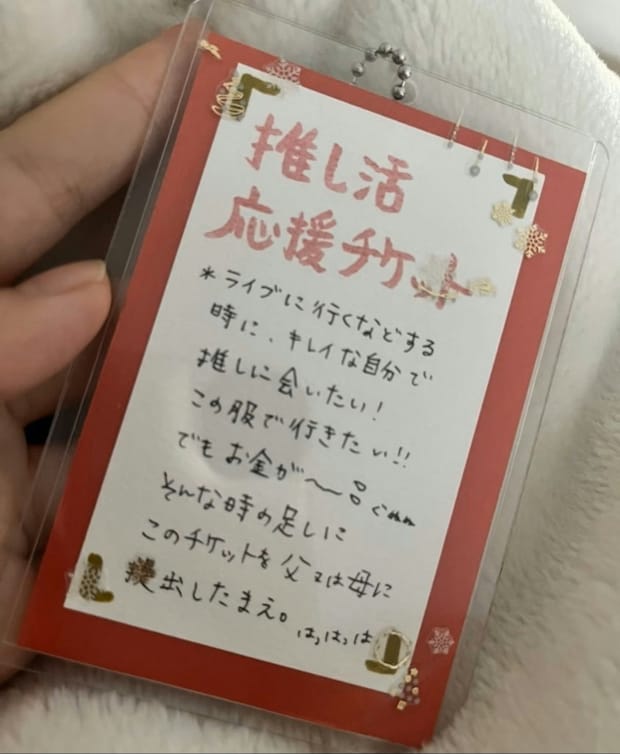 推し活
応援チケット
*ライブに行くなどする
時に、キレイな自分で
推しに会いたい!
この服で行きたい!!
でもお金が〜 ぐぬぬ
そんな時の足しに
このチケットを父又は母に
提出したまえ。はっはっは